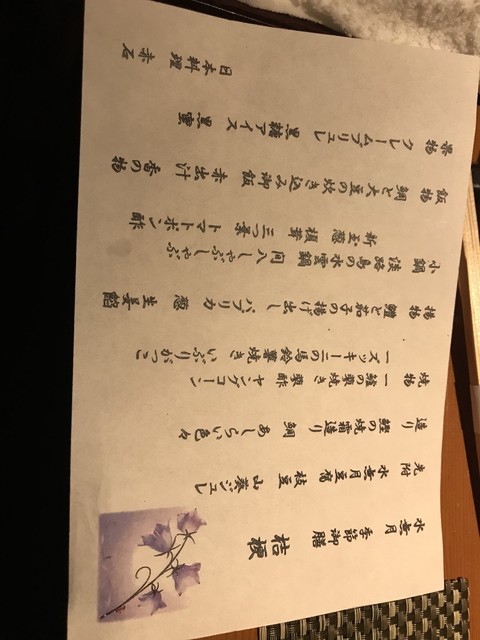 水無月 季節御膳 桔梗
先附 水無月豆腐 枝豆 山葵ジュレ
造り 鰹の焼霜造り 鯛 あしらい色々
焼物 一 の蓼焼き 蓼酢 ヤングコーン
一ズッキーニの馬鈴薯焼き いぶりがっこ
揚物 鱧と茄子の揚げ出し パプリカ 葱 生姜餡
小鍋 淡路島の水雲鍋 間八しゃぶしゃぶ
新玉葱 榎茸 三つ葉 トマトポン酢
飯物 鯛と大豆の炊き込み御飯 赤出汁 香の物
果物 クレームブリュレ 黒糖アイス 黒蜜
日本料理 赤石